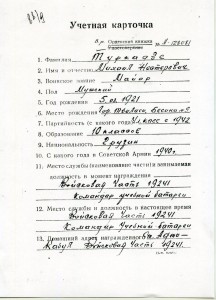 Учетная карточка
Советская книжка
№ А-
1. Фамилия Туркадзе
2. Имя и отчество Михаил Несторович
3. Воинское звание Майор
4. Пол Мужской
5. Год рождения 5. 1921
6. Место рождения Гор. Тбилиси,
7. Партийность (с какого года) Чл. КПСС с 1942
8. Образование 10 классов
9. Национальность Грузин
10. С какого года в Советской Армии 1940г.
11. Место службы (наименование части) и занимаемая
должность в момент награждения
Войсковая Часть 19241
Командир учебной батареи
12. Место службы и должность в настоящее время
Войсковая Часть 19241
Командир Учебной батареи
13. Домашний адрес награжденного
Войсковая Часть 19241.